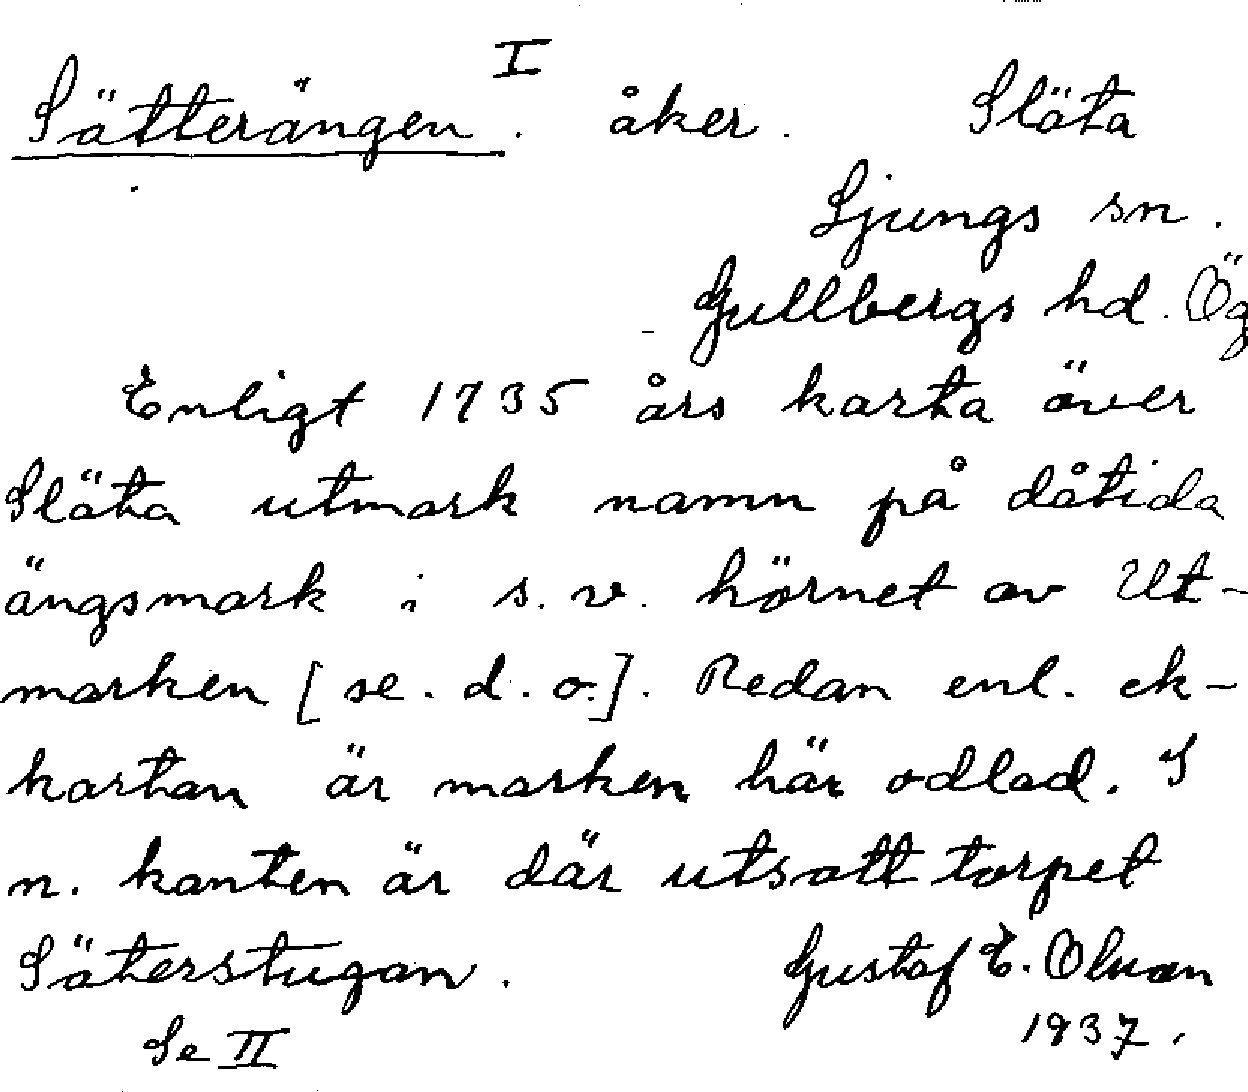 I
Sätterängen. åker. Släta
Ljungs sn.
Gullbergs hd. Ög
Enligt 1735 års karta över
Släta utmark namn på dåtida
ängsmark i s.v. hörnet av Ut-
marken [se. d. o.]. Redan enl. ek-
kartan är marken här odlad. I
n. kanten är där utsatt torpet
Säterstugan. Gustaf E. Olsson
Se II 1937.